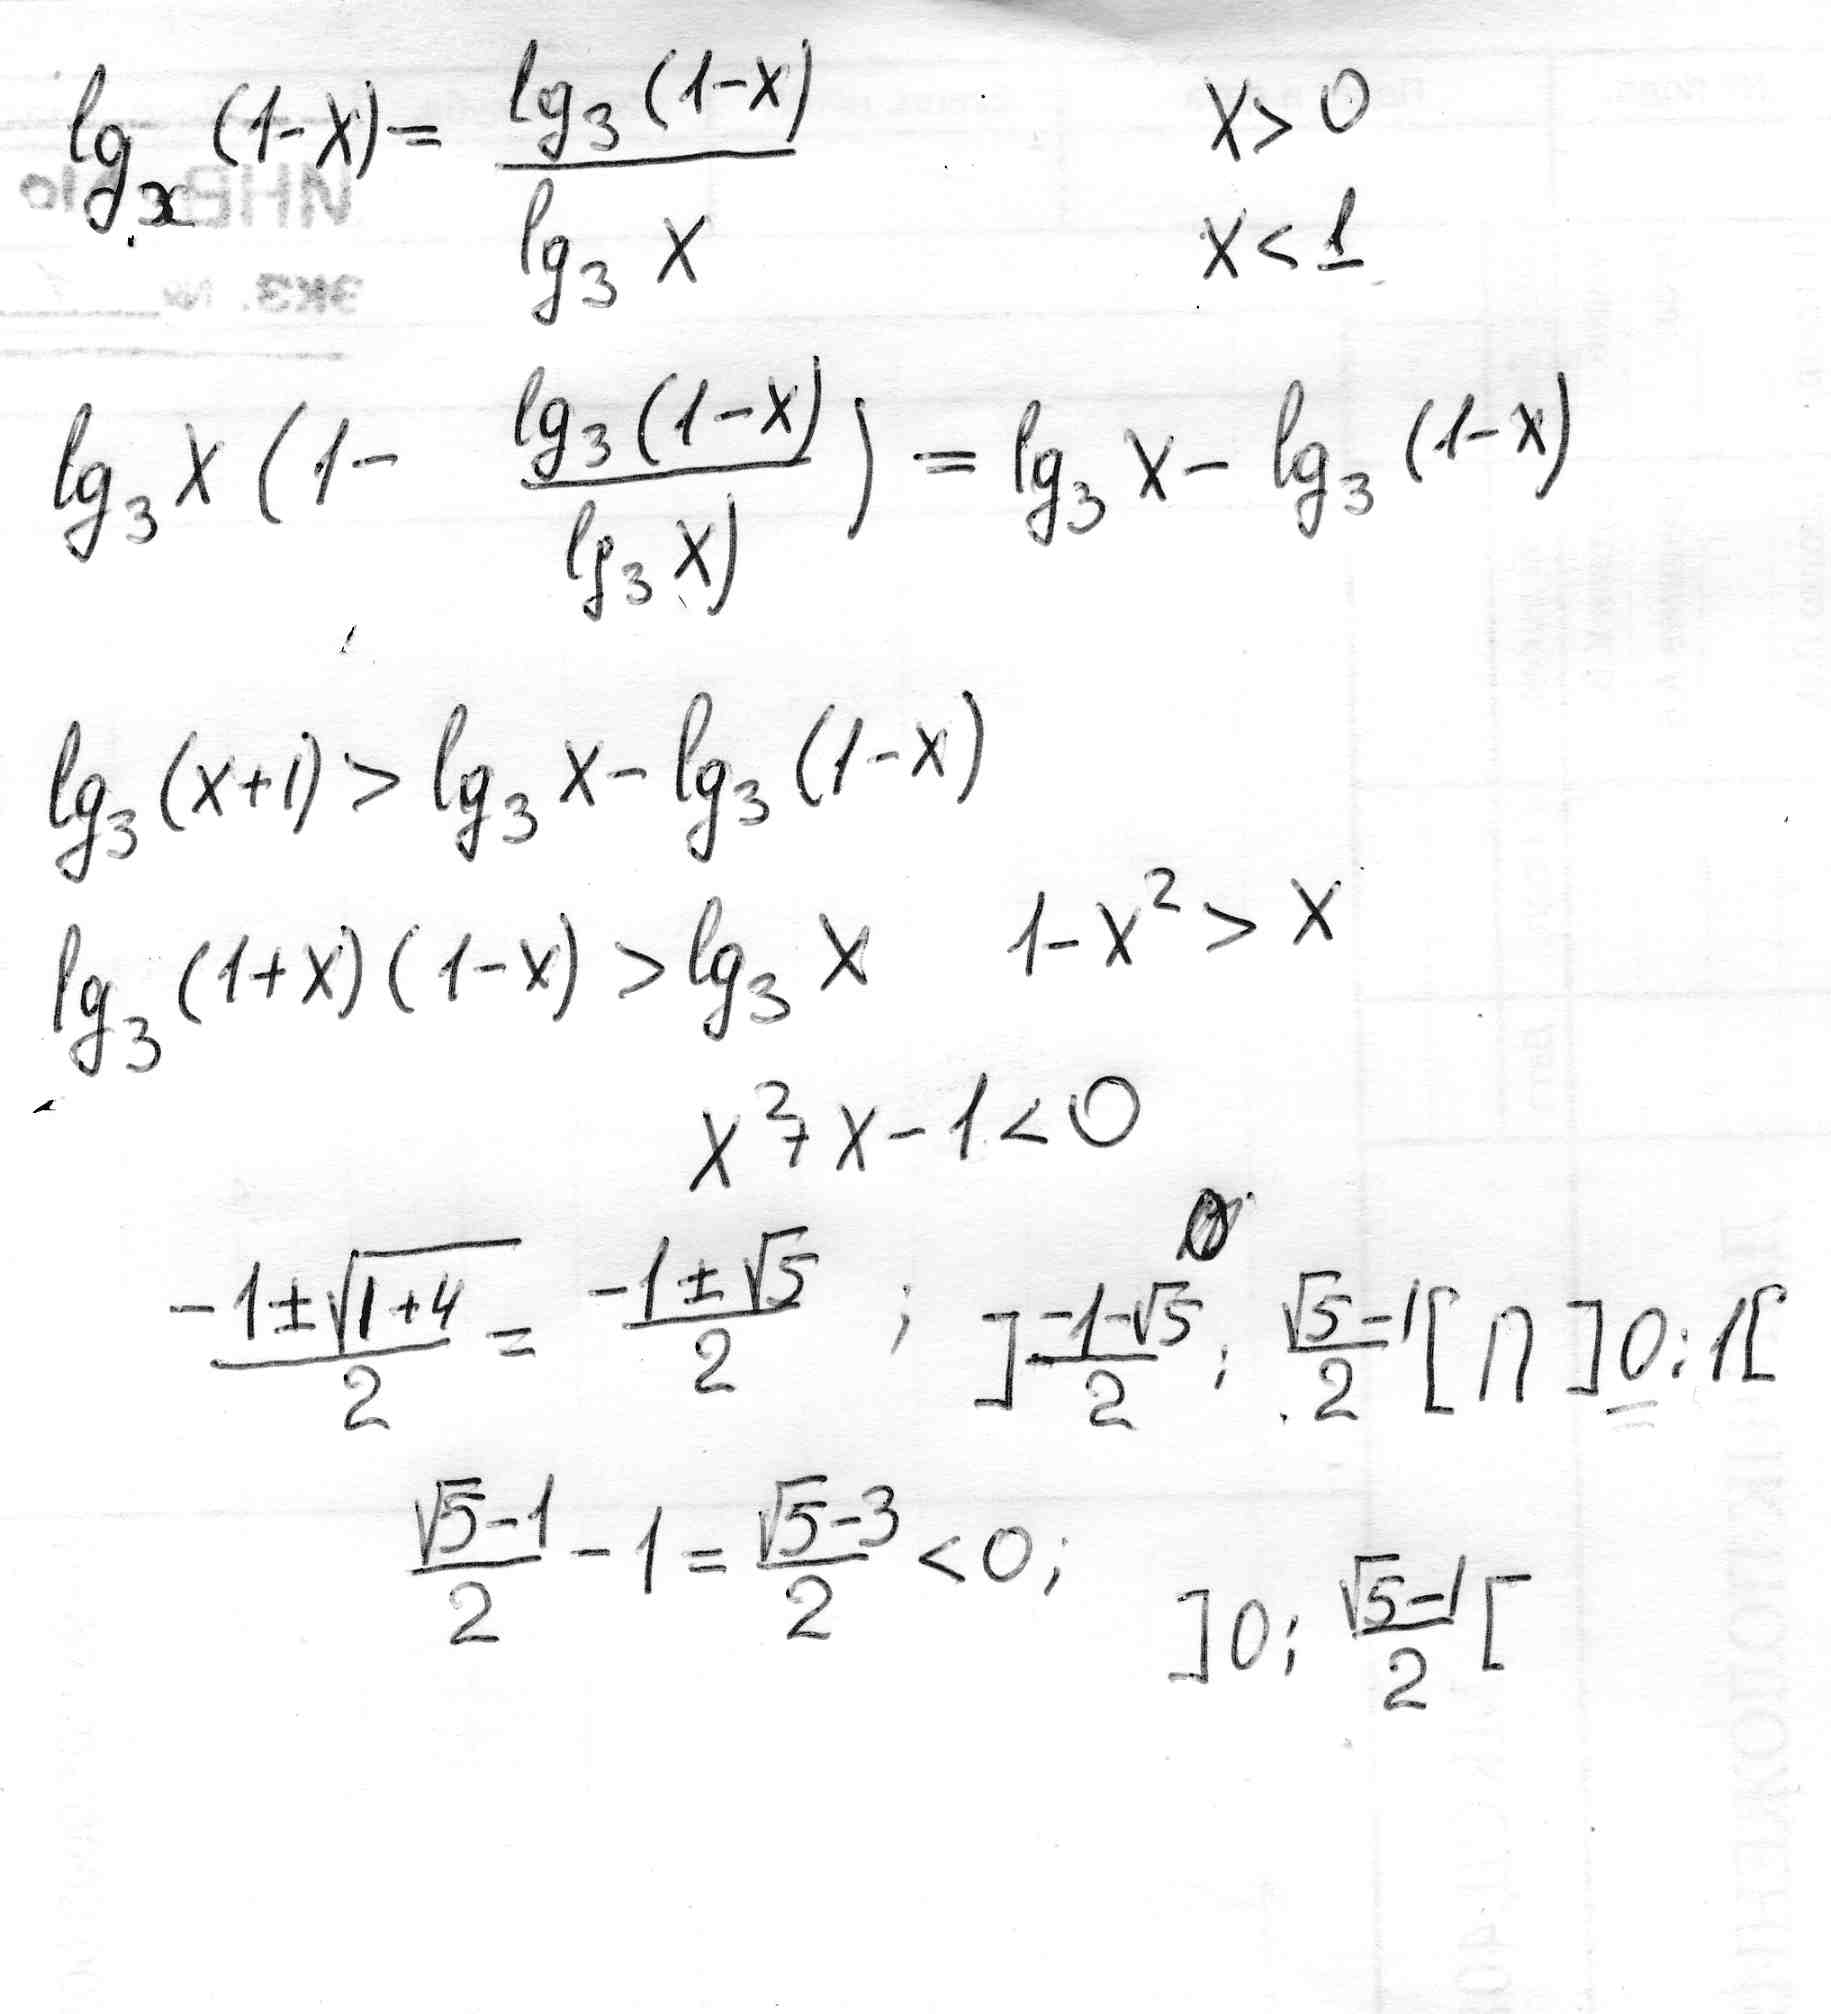 lg_x (1-x) = lg_3 (1-x) / lg_3 x    x > 0
x < 1
lg_3 x (1 - lg_3 (1-x) / lg_3 x)) = lg_3 x - lg_3 (1-x)
lg_3 (x+1) > lg_3 x - lg_3 (1-x)
lg_3 (1+x)(1-x) > lg_3 x    1-x² > x
x² + x - 1 < 0
(-1±√(1+4))/2 = (-1±√5)/2 ; ](-1-√5)/2 ; (√5-1)/2[ ∩ ]0; 1[
(√5-1)/2 - 1 = (√5-3)/2 < 0; ]0; (√5-1)/2[
ИНВ
ЭКЗ. №